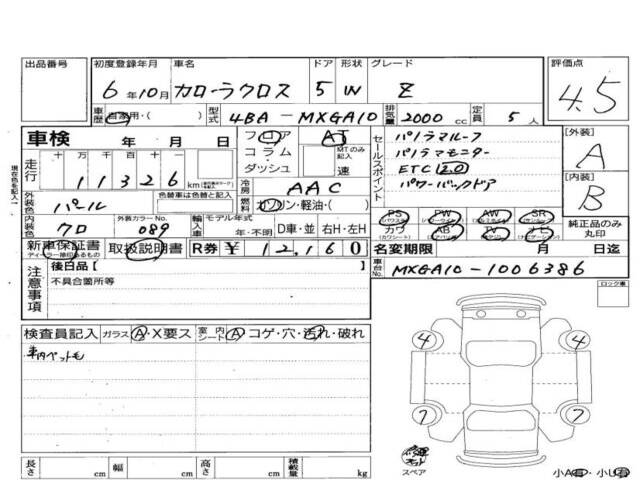 出品番号 初度登録年月 車名 ドア 形状 グレード 評価点
6年10月 カローラクロス 5 W Z 4.5
車歴 自家用・( ) 型式 4BA-MXGA10 排気量 2000cc 定員 5人
車検 年 月 日 フロア AT セールスポイント パノラマルーフ [外装]
コラム・ MTのみ記入 パノラマモニター A
ダッシュ 速 ETC 2.0
走行 十万千百十 11326km 冷房 AAC パワーバックドア [内装]
現在色を記入→ 外装色 パール 色替車は色替と記入 燃料 ガソリン・軽油・( ) B
内装色 クロ 外装カラーNo. 089 輸入車 モデル年式 年・不明 D車・並 右H・左H
PS PW AW SR 純正品のみ丸印
カワ AB TV ナビ
新車保証書 取扱説明書 R券 ¥12,160 名変期限 月 日迄
ディーラー捺印あるもの
車台No. MXGA10-1006386
注意事項 後日品[ ] ロック車
不具合箇所等
検査員記入 ガラス A・X要ス 室内シート A コゲ・穴・汚れ・破れ
車内ペット毛
4 4
7 7
修理キット
スペア
長さ cm 幅 cm 高さ cm 積載量 kg
小A 小U